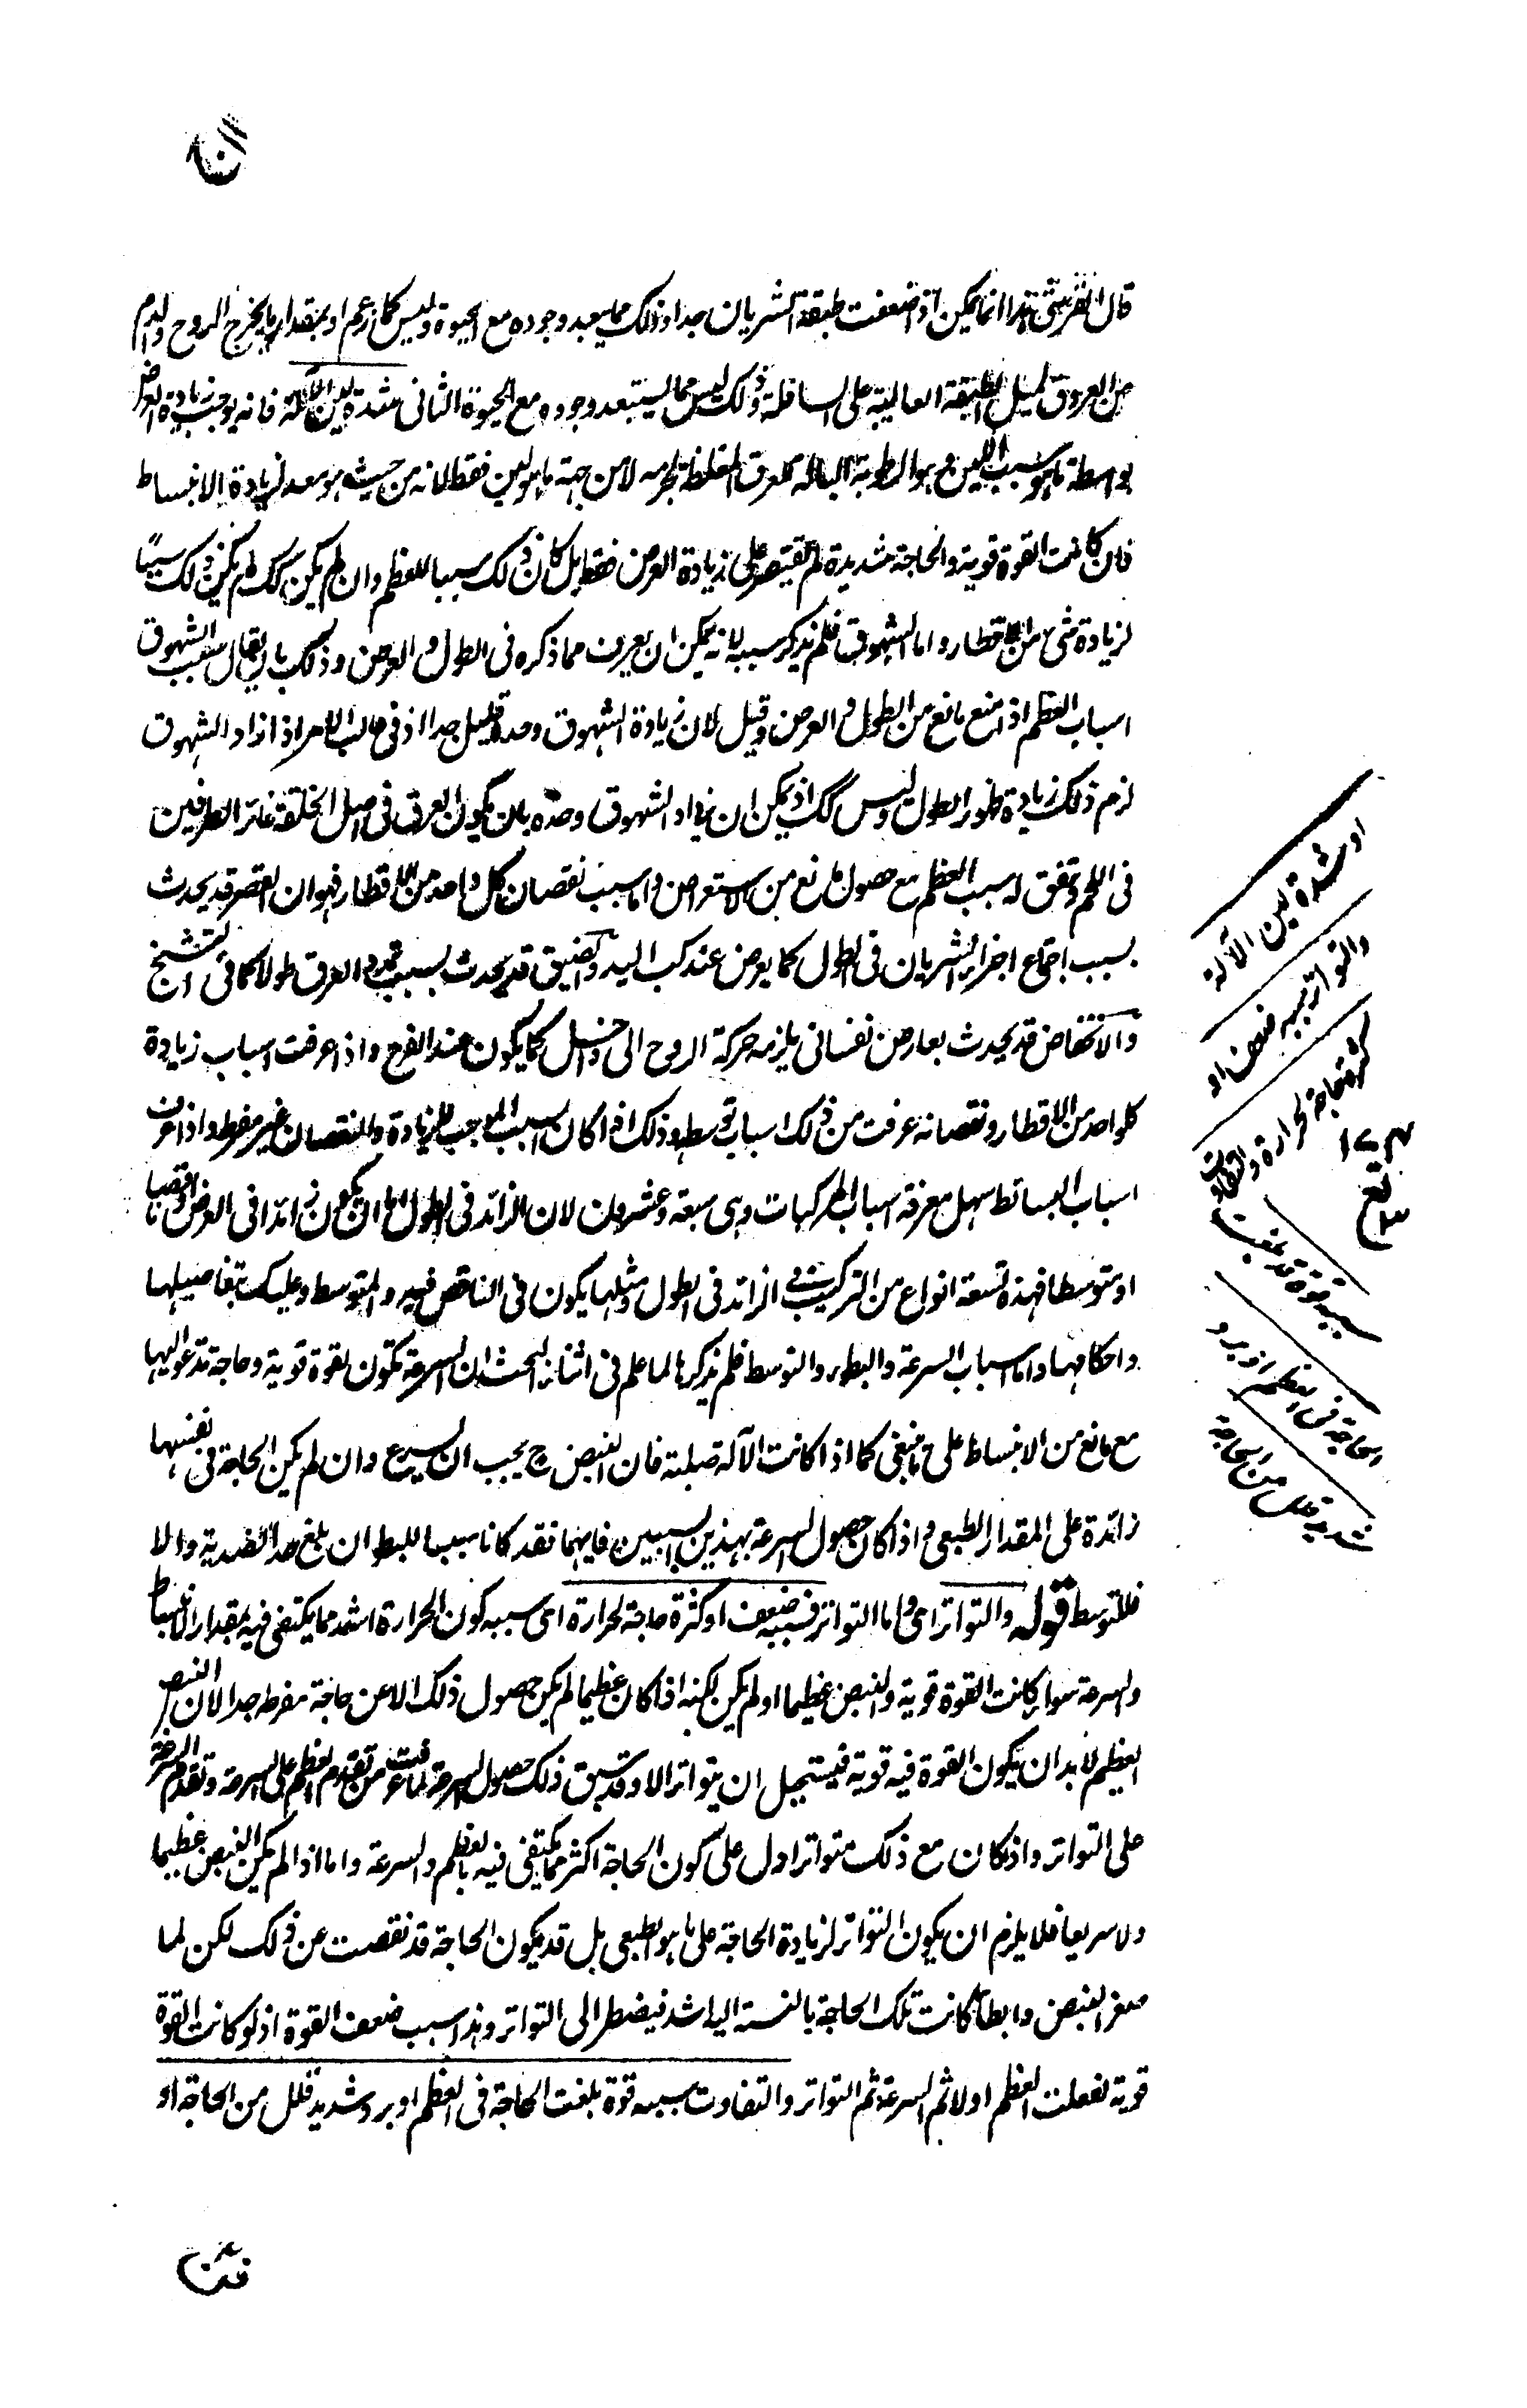 قال القرشی هذا انما یمکن اذا ضعفت طبقة الشریان جدا و ذلک مما یبعد وجوده مع الحیوة ولیس کما زعم او بمقدار ما یخرج الروح والدم
من العروق لمیل الطبقة العالیة علی السافلة و ذلک لیس مما یستبعد وجوده مع الحیوة الثانی شدة لین الآلة فانه یوجب زیادة العرض
بواسطة ما هو سبب اللین و هو الرطوبة البالة للعرق المغلظة لجرمه لا من جهة ما هو لین فقط لانه من حیث هو معد لزیادة الانبساط
فان کانت القوة قویة والحاجة شدیدة لم یقتصر علی زیادة العرض فقط بل کان ذلک سببا للعظم وان لم یکن کک لم یکن ذلک سببًا
لزیادة شئ من الاقطار واما الشهوق فلم یذکر سببه لانه یمکن ان یعرف مما ذکره فی الطول والعرض وذلک بان یقال سبب الشهوق
اسباب العظم اذا منع مانع من الطول والعرض وقیل لان زیادة الشهوق وحده قلیل جدا اذ فی غالب الامر اذا زاد الشهوق
لزم ذلک زیادة ظهور الطول ولیس کک اذ یمکن ان یزداد الشهوق وحده بان یکون العرق فی اصل الخلقة غائر الطرفین
فی اللحم ویتفق له سبب العظم مع حصول مانع من الاستعراض واما سبب نقصان کل واحد من الاقطار فهو ان القصر قد یحدث
بسبب اجتماع اجزاء الشریان فی الطول کما یعرض عند کب الید والضیق قد یحدث بسبب تمدد العرق طولا کما فی التشنج
والانخفاض قد یحدث بعارض نفسانی یلزمه حرکة الروح الی داخل کما یکون عند الفزع واذا عرفت اسباب زیادة
کل واحد من الاقطار ونقصانه عرفت من ذلک اسباب توسطه وذلک اذا کان السبب الموجب للزیادة والنقصان غیر مفرط واذا عرفت
اسباب البسائط سهل معرفة اسباب المرکبات وهی سبعة وعشرون لان الزائد فی الطول اما ان یکون زائدا فی العرض او ناقصا
او متوسطا فهذه تسعة انواع من الترکیب فی الزائد فی الطول ومثلها یکون فی الناقص فیه والمتوسط وعلیک بتفاصیلها
واحکامها واما اسباب السرعة والبطوء والتوسط فلم یذکرها لما علم فی اثناء البحث ان السرعة تکون لقوة قویة وحاجة تدعو الیها
مع مانع من الانبساط علی ما ینبغی کما اذا کانت الآلة صلبة فان النبض ح یجب ان یسرع وان لم یکن الحاجة فی نفسها
زائدة علی المقدار الطبیعی واذا کان حصول السرعة بهذین السببین فایهما فقد کان سببا للبطوء ان بلغ حد الضدیة والا
فللتوسط قوله والتواتر ای واما التواتر فسببه ضعف او کثرة حاجة لحرارة ای سببه کون الحرارة اشد مما یکتفی فیه بمقدار الانبساط
والسرعة سواء کانت القوة قویة والنبض عظیما او لم یکن لکنه اذا کان عظیما لم یکن حصول ذلک الا عن حاجة مفرطة جدا لان النبض
العظیم لا بد ان یکون القوة فیه قویة فیستحیل ان یتواتر الا وقد سبق ذلک حصول السرعة لما عرفت من تقدم العظم علی السرعة وتقدم السرعة
علی التواتر واذا کان مع ذلک متواترا دل علی کون الحاجة اکثر مما یکتفی فیه بالعظم والسرعة واما اذا لم یکن النبض عظیما
ولا سریعا فلا یلزم ان یکون التواتر لزیادة الحاجة علی ما هو الطبیعی بل قد یکون الحاجة قد نقصت عن ذلک لکن لما
صغر النبض وابطأ کانت تلک الحاجة بالنسبة الیه اشد فیضطر الی التواتر وهذا سبب ضعف القوة اذ لو کانت القوة
قویة لفعلت العظم اولا ثم السرعة ثم التواتر والتفاوت سببه قوة بلغت الحاجة فی العظم او برد شدید قلل من الحاجة او
او شدة لین الآلة
والتواتر سببه ضعف او
کثرة حاجة لحرارة والتفاوت
سببه قوة قد بلغت
الحاجة فی العظم او برد
شدید قلل من الحاجة